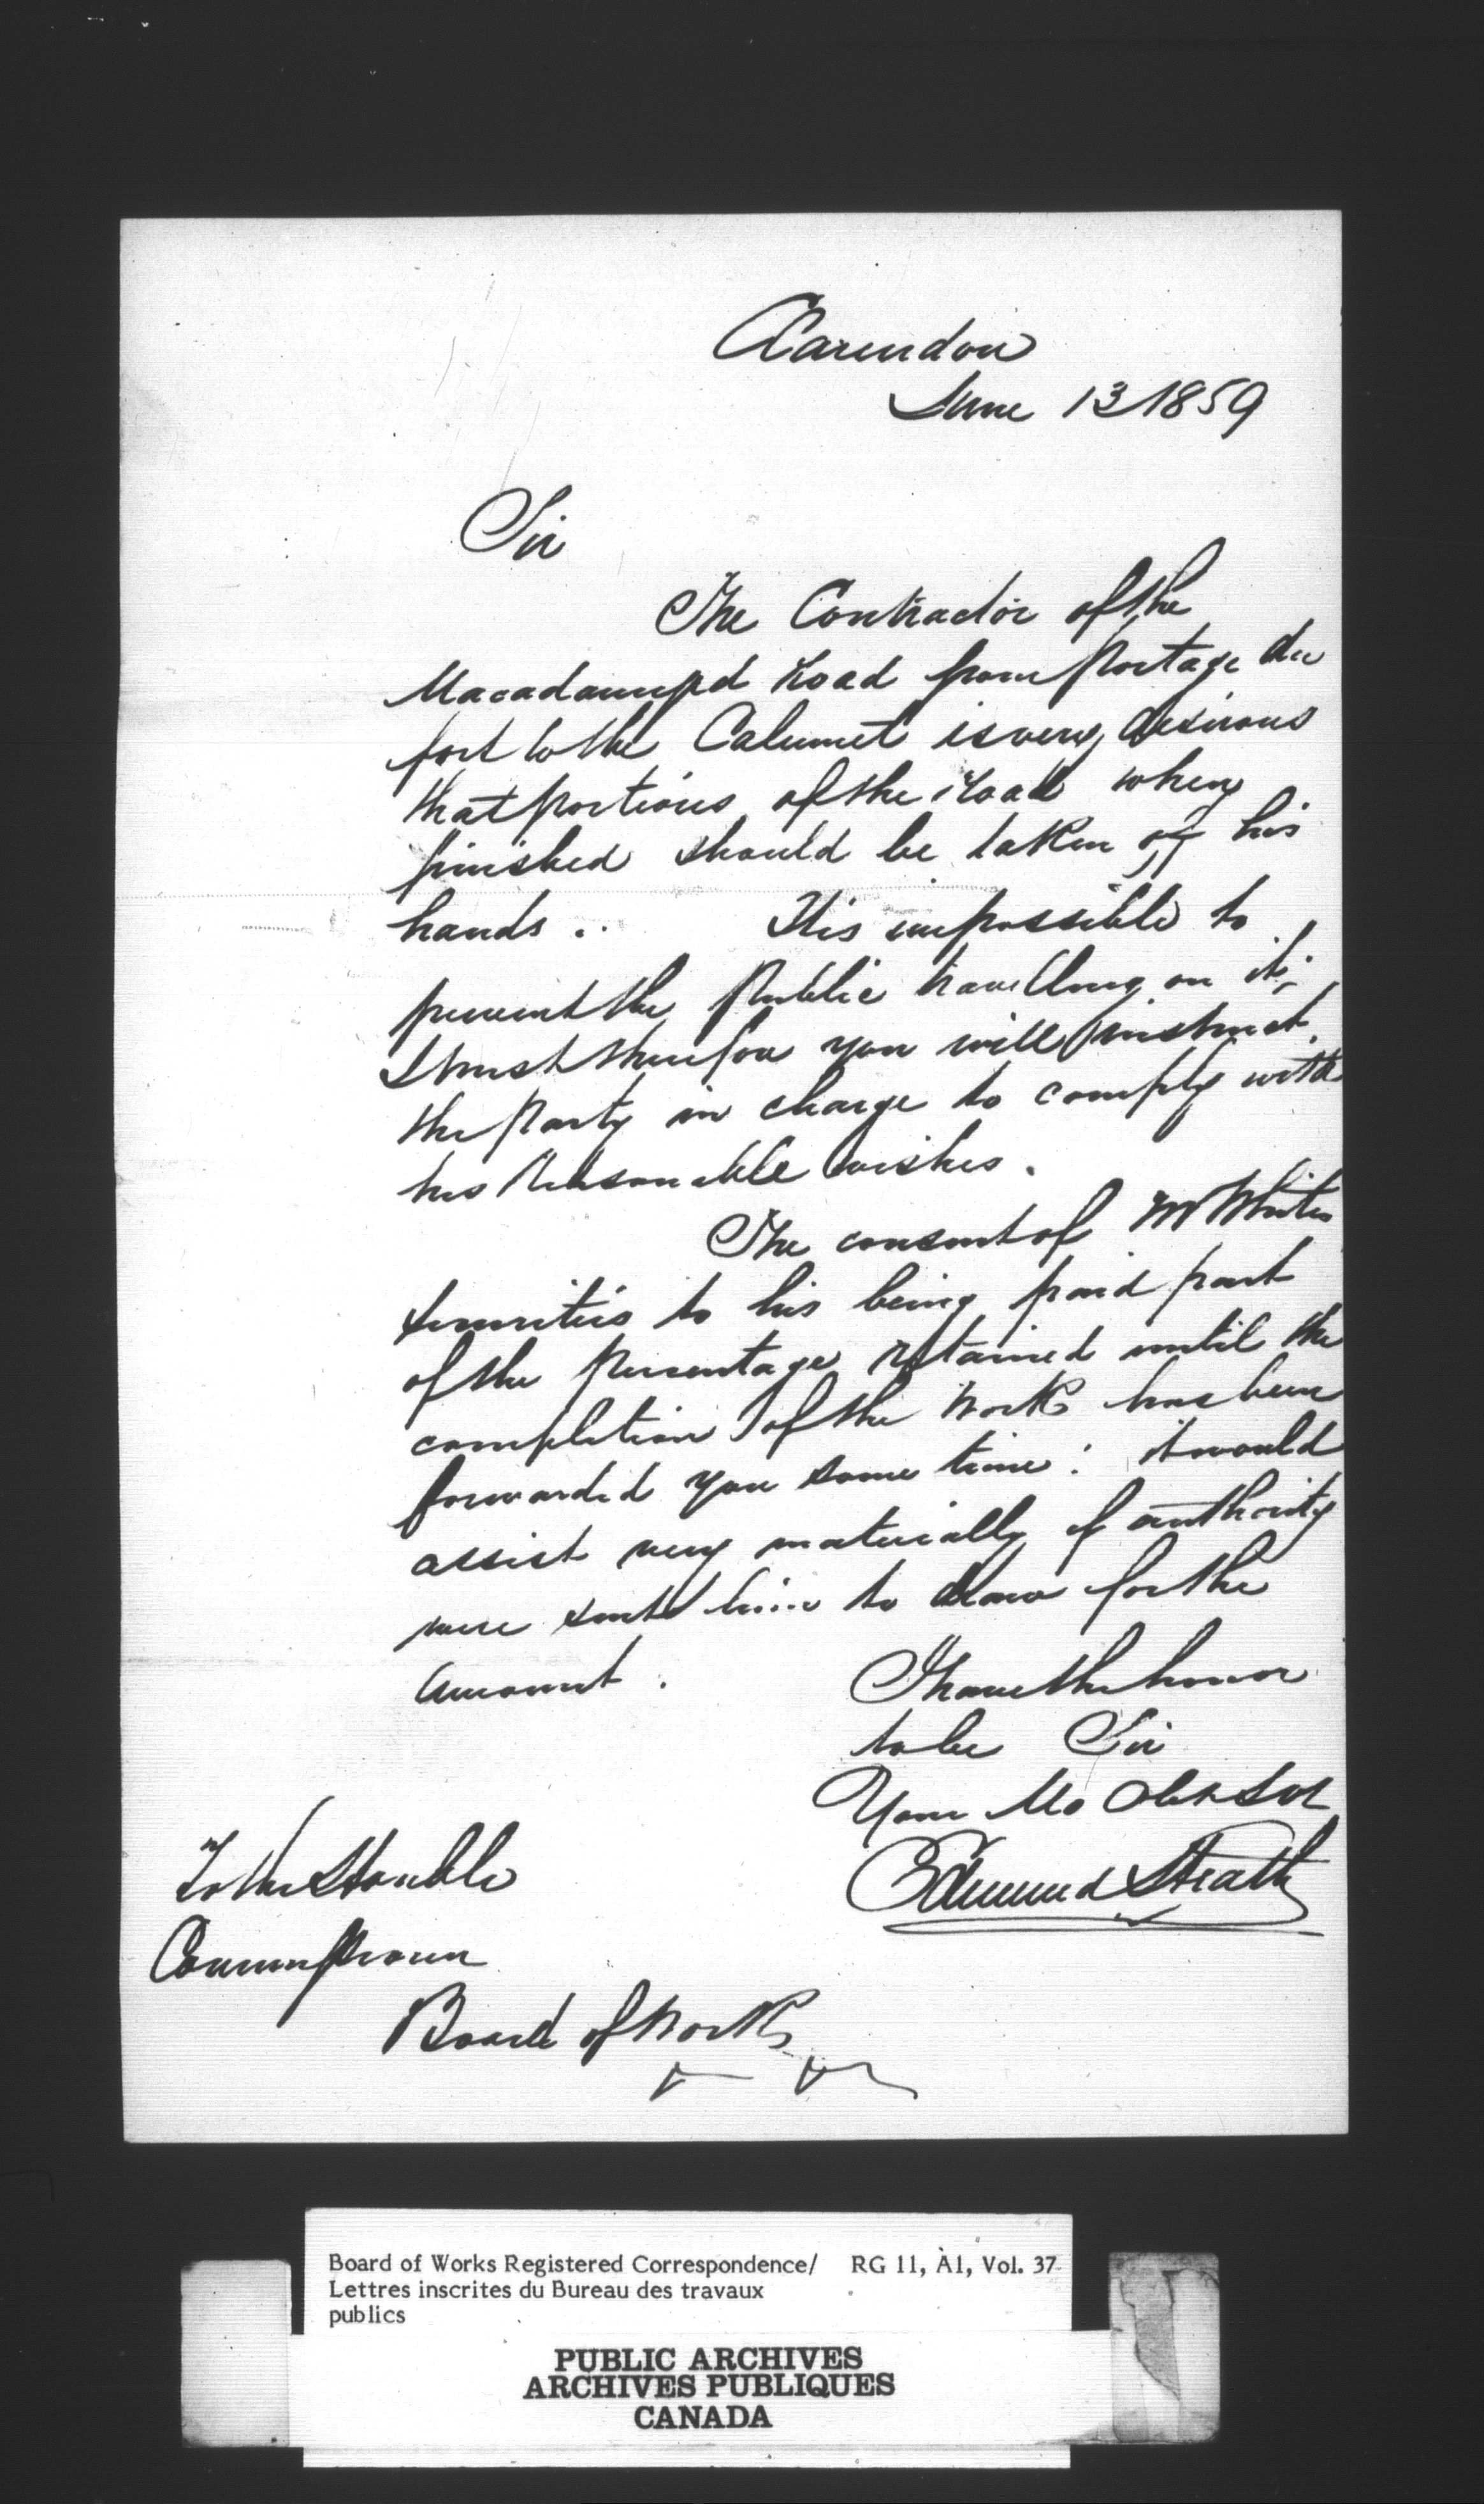 Clarendon
June 13 1859
Sir
The Contractor of the
Macadamized Road from Portage du
fort to the Calumet is very desirous
that portions of the road when
finished should be taken off his
hands ..     It is impossible to
prevent the Public travelling on it;
I trust therefore you will instruct
the Party in charge to comply with
his reasonable wishes.
The consent of Mr Whites
sureties to his being paid part
of the Percentage retained until the
completion of the Work has been
forwarded you some time: it would
assist very materially if authority
were sent him to draw for the
Amount.
I have the honor
to be Sir
Your Mo Obt Svt
Edmund Heath
To the Honble
Commissioner
Board of Works
Board of Works Registered Correspondence/ RG 11, A1, Vol. 37
Lettres inscrites du Bureau des travaux
publics
PUBLIC ARCHIVES
ARCHIVES PUBLIQUES
CANADA